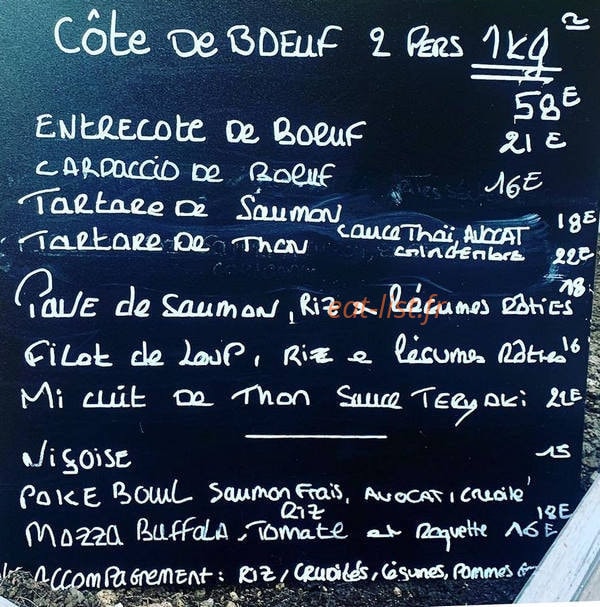 CÔte De BOEUF 2 Pers 1KG
58E
ENTRECOTE DE BOEUF 21 E
CARPACCIO DE BOEUF 16E
TARTARE DE SAUMON 18E
TARTARE DE THON Sauce Thaï AVOCAT 22E
PAVE de SAUMON, RIZ & légumes RôTIES 18
eat-list.fr
FILET de LOUP, RIZ e légumes Rôties 16
MI CUIT DE THON Sauce TERYAKI 21E
NIÇOISE 15
POKE BOWL SAUMON FRAIS, AVOCAT, CRUDITé
RIZ 18E
MOZZA BUFFALA, TOMATE et Roquette 16E
ACCOMPAGNEMENT : RIZ, CRUDITÉS, LÉGUMES, POMMES